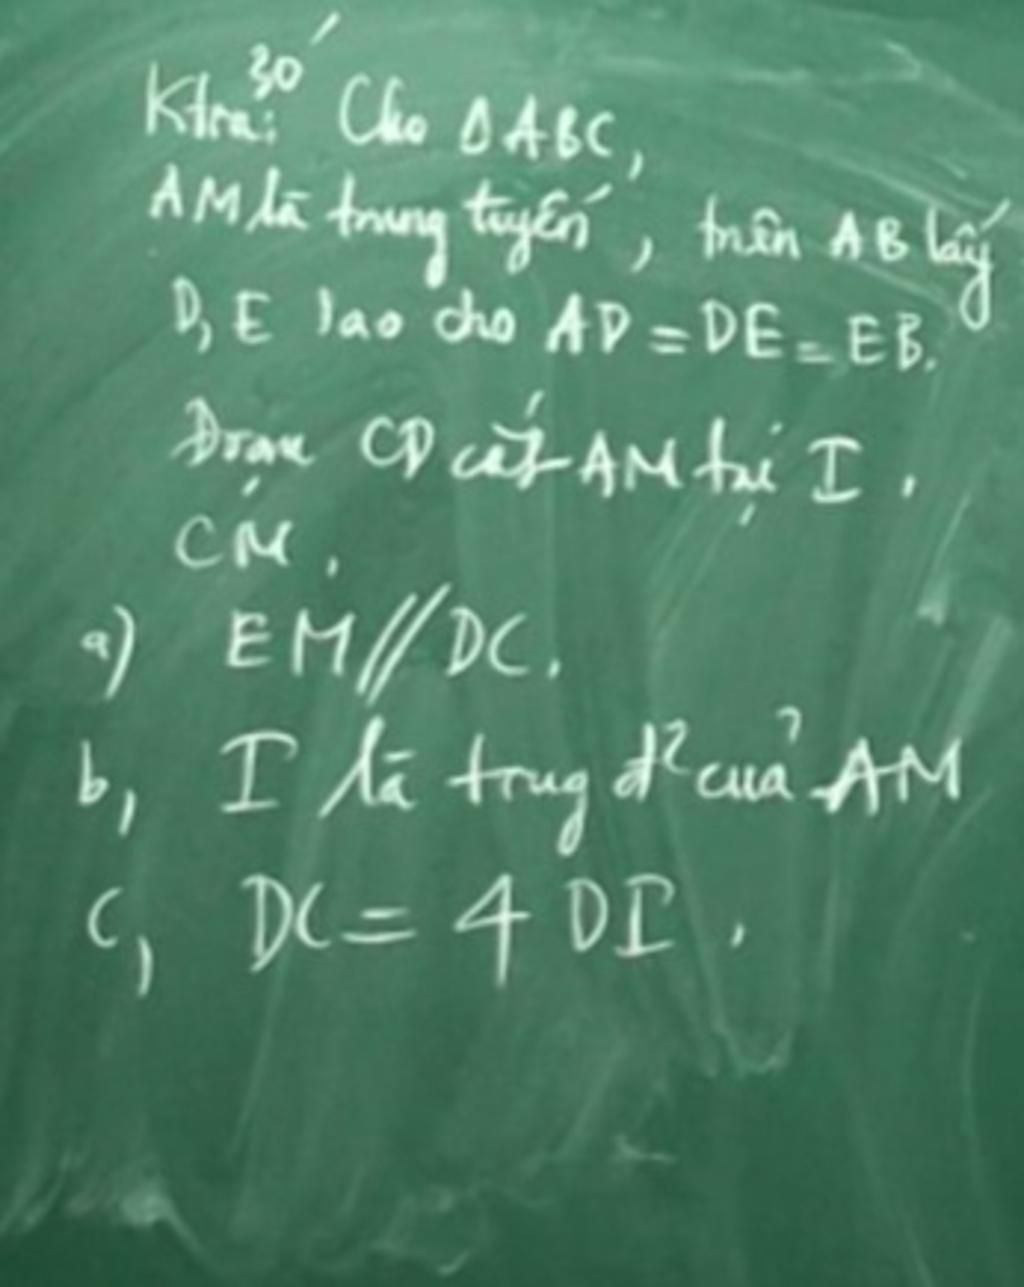 30'
Ktra: Cho ΔABC,
AM là trung tuyến, trên AB lấy
D, E sao cho AD = DE = EB.
Đoạn CD cắt AM tại I.
CM.
a) EM // DC.
b, I là trug đ² của AM
c, DC = 4 DI.